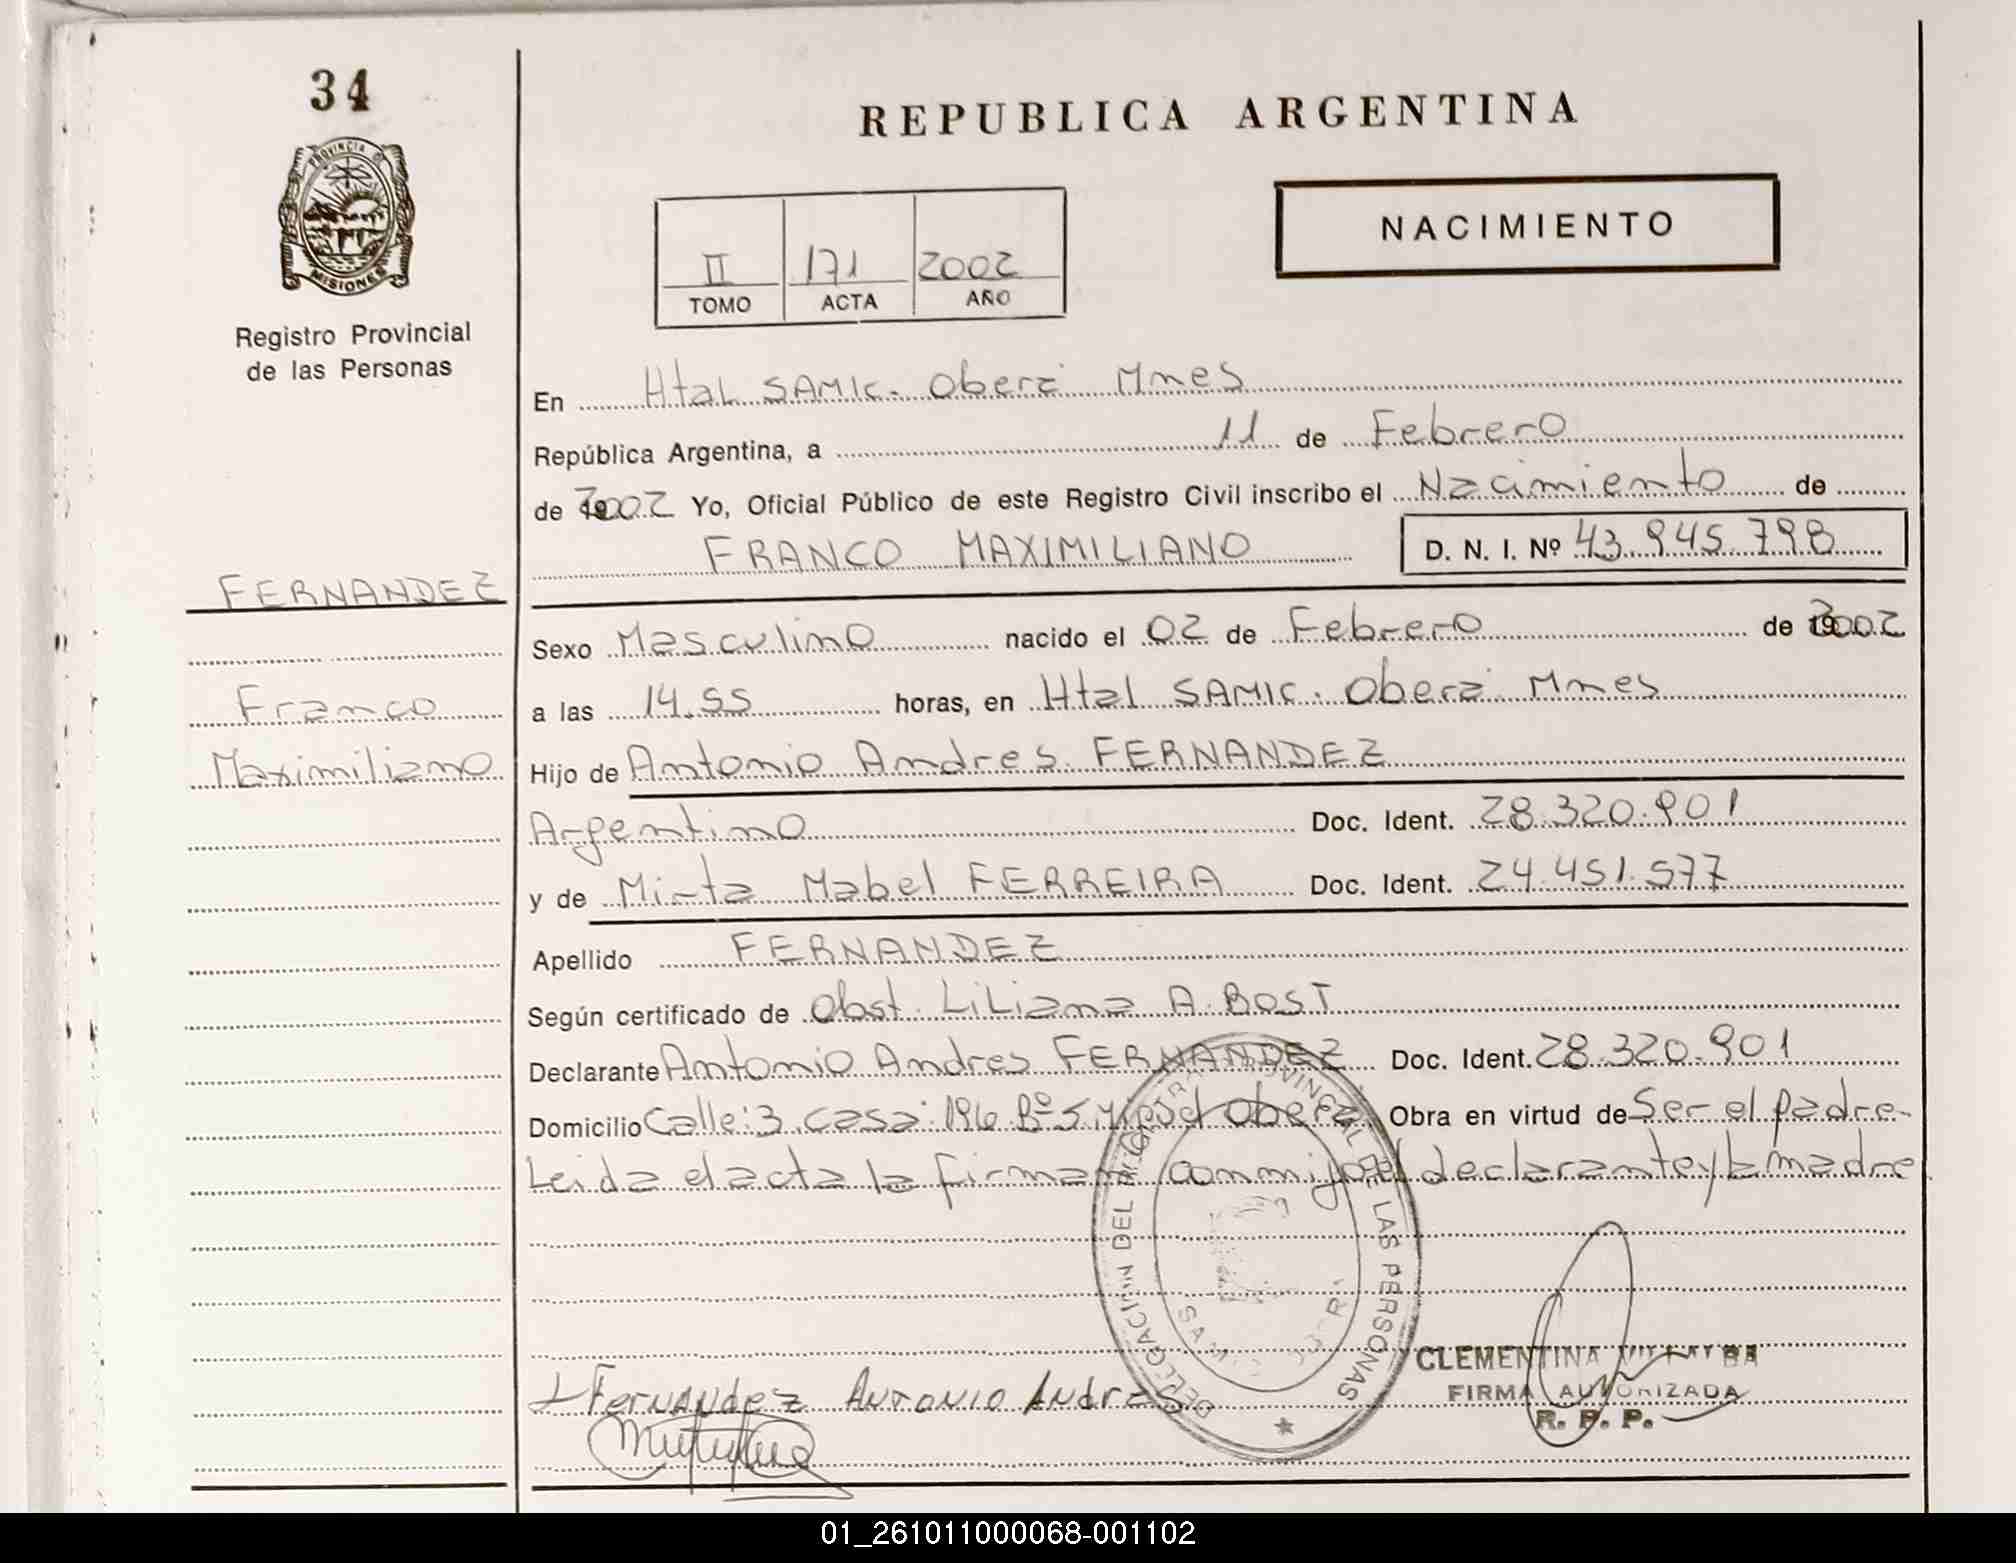 34
REPUBLICA ARGENTINA
PROVINCIA DE
MISIONES
Registro Provincial
de las Personas
NACIMIENTO
II 171 2002
TOMO ACTA AÑO
En Htal SAMIC. Oberá Mnes
República Argentina, a 11 de Febrero
de 2002 Yo, Oficial Público de este Registro Civil inscribo el Nacimiento de
FRANCO MAXIMILIANO D. N. I. Nº 43.945.798
FERNANDEZ
Sexo Masculino nacido el 02 de Febrero de 2002
Franco
a las 14.55 horas, en Htal SAMIC. Oberá Mnes
Maximiliano
Hijo de Antonio Andres FERNANDEZ
Argentino Doc. Ident. 28.320.901
y de Mirta Mabel FERREIRA Doc. Ident. 24.451.577
Apellido FERNANDEZ
Según certificado de Obst. Liliana A. BOST
Declarante Antonio Andres FERNANDEZ Doc. Ident. 28.320.901
Domicilio Calle: 3 casa: 196 Bº S. Oberá Obra en virtud de Ser el padre-
Leida el acta la firman conmigo el declarante y la madre
DELEGACION DEL REGISTRO PROVINCIAL DE LAS PERSONAS
FERNANDEZ ANTONIO ANDRES
CLEMENTINA
FIRMA AUTORIZADA
R. P. P.
01_261011000068-001102